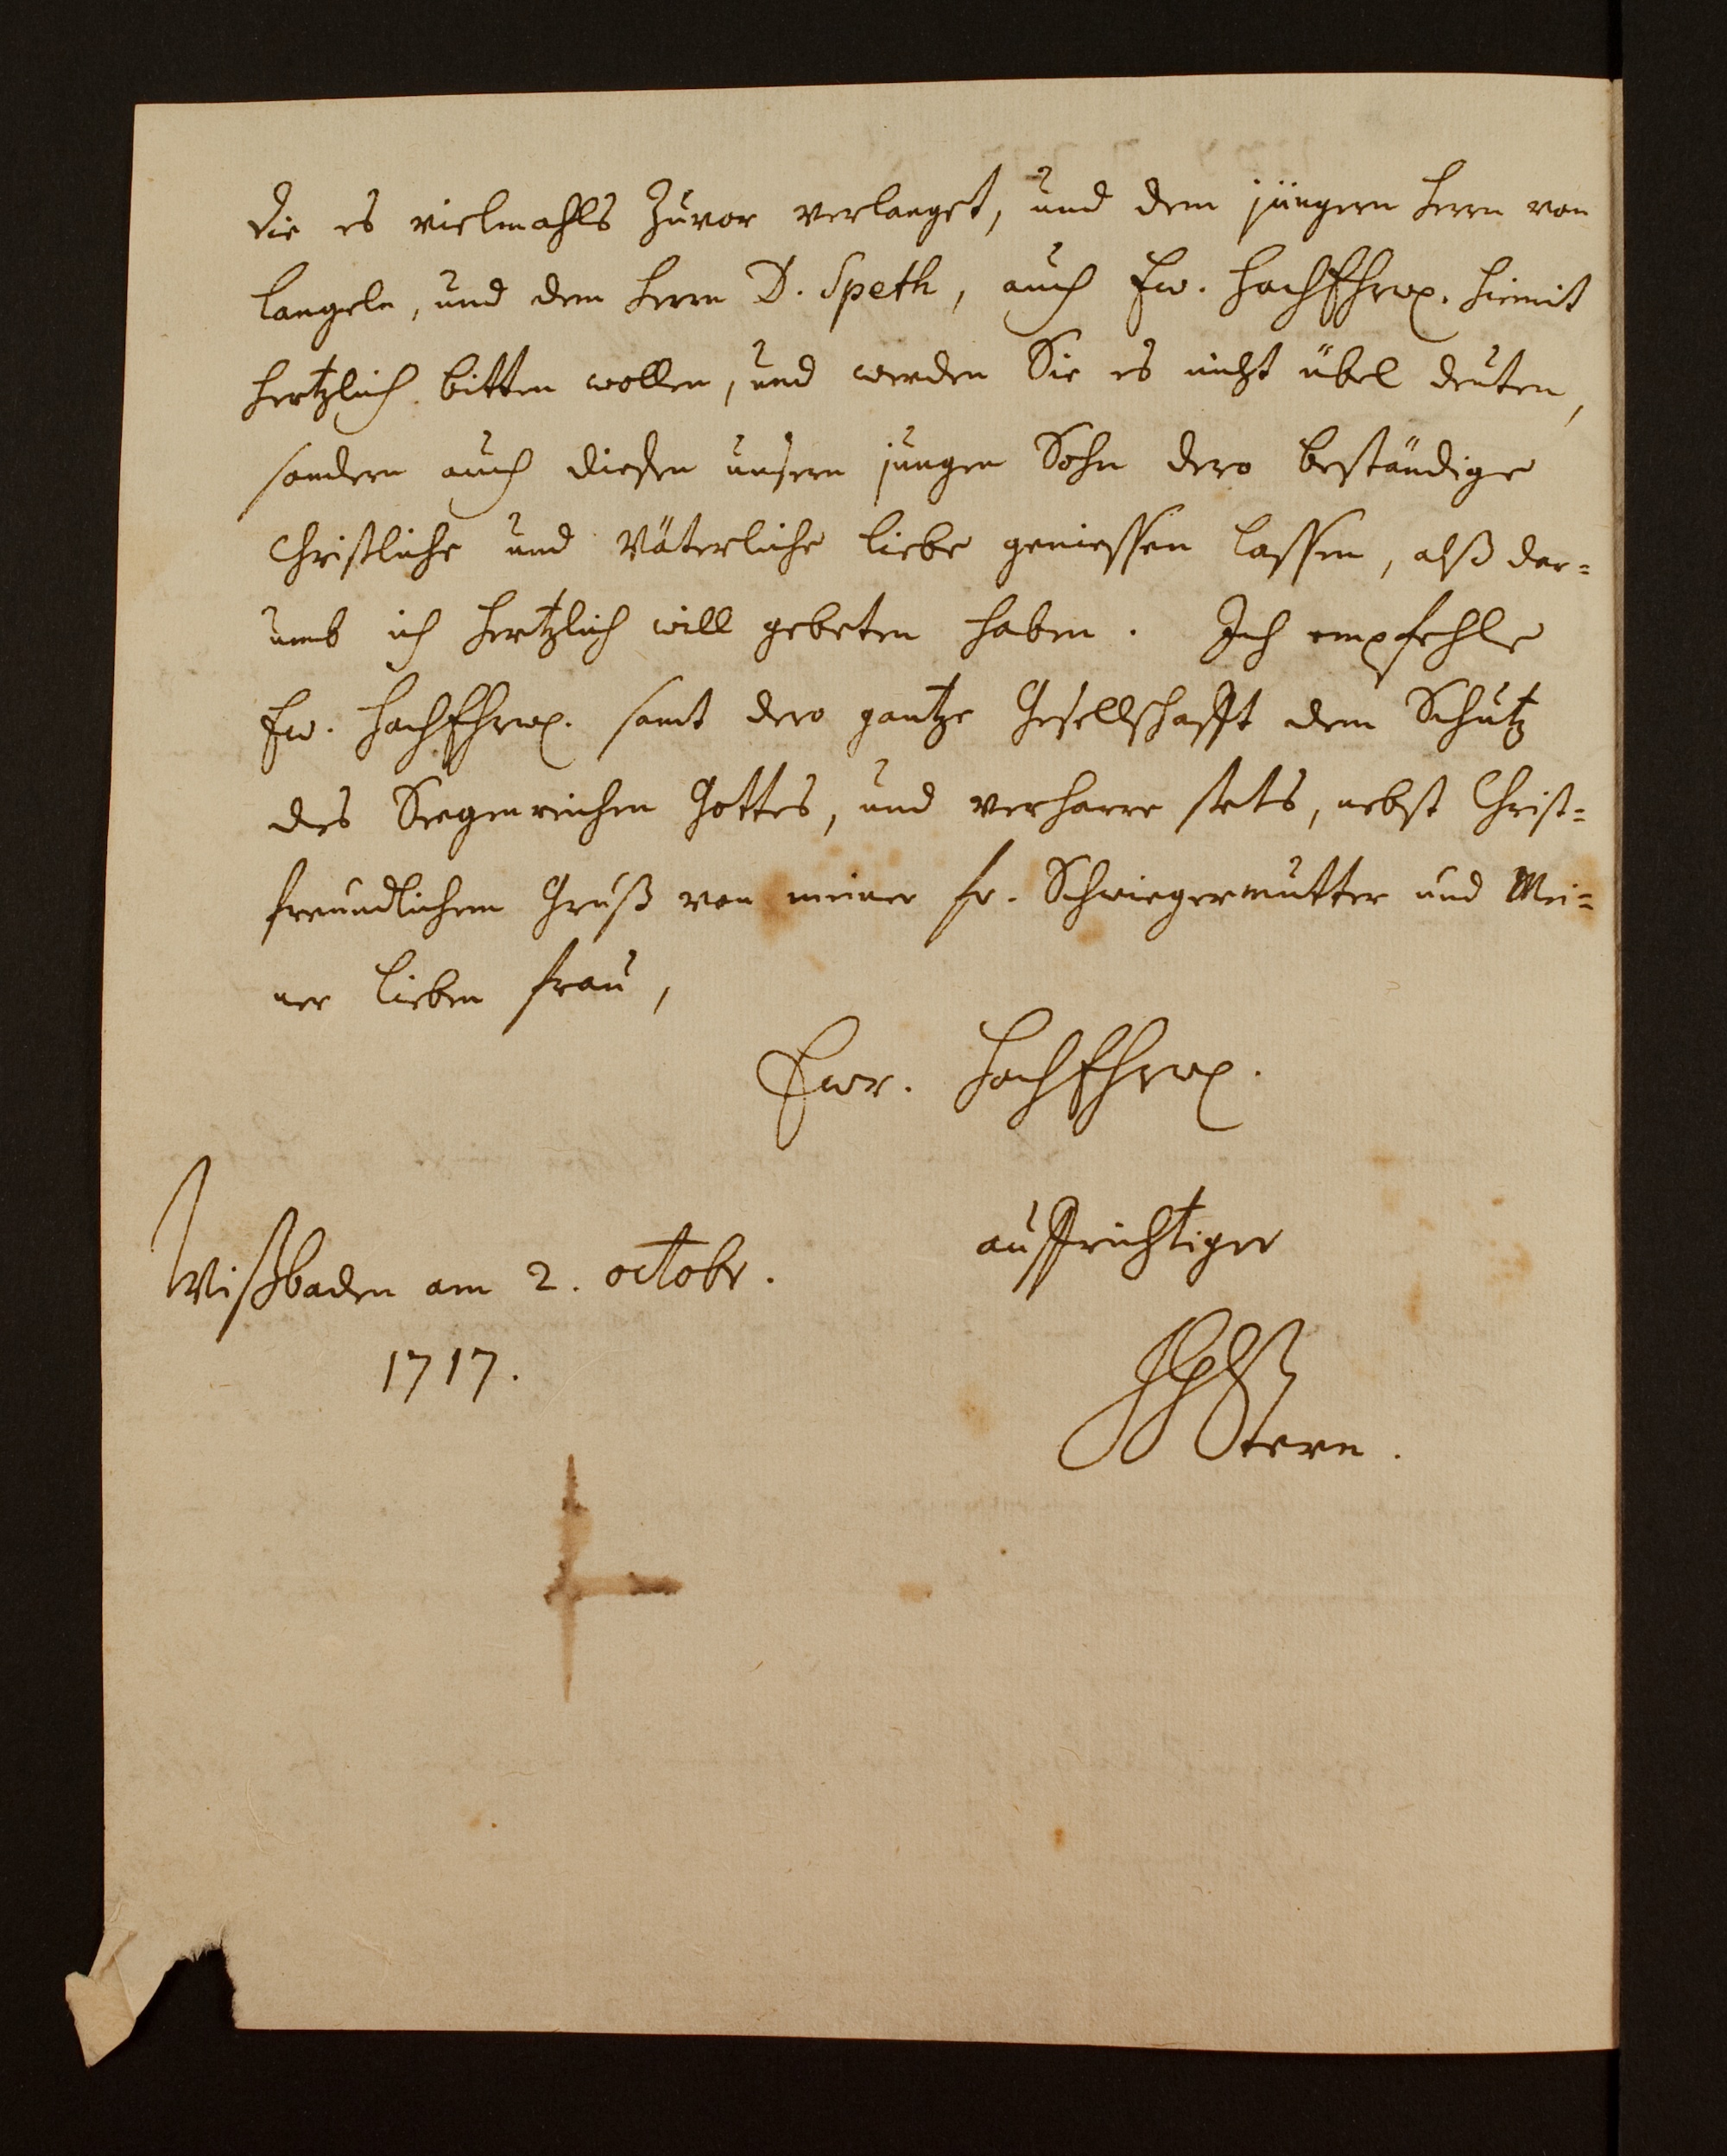 die es vielmahls zuvor verlanget, und dem jüngern Herrn von
Langeln, und dem Herrn D. Speth, auch Ew. HochEhrw. hiemit
hertzlich bitten wollen, und werden Sie es nicht übel deuten,
sondern auch diesen unsern jungen Sohn dero beständige
Christliche und Väterliche Liebe geniessen lassen, alß dar=
umb ich hertzlich will gebeten haben. Ich empfehle
Ew. HochEhrw. samt dero gantze Gesellschafft dem Schutz
des Seegenreichen Gottes, und verharre stets, nebst Christ=
freundlichem Gruß von meiner fr. Schwiegermutter und Mei=
ner Lieben Frau,
Ewr. HochEhrw.
auffrichtiger
Wißbaden am 2. octobr.
1717.
Stern.